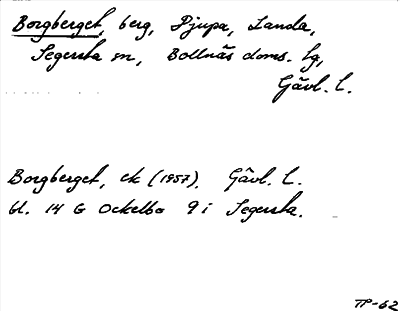 Borgberget, berg, Djupa, Landa,
Segersta sn, Bollnäs doms. lg,
Gävl. l.
Borgberget, ek (1957), Gävl. l.
bl. 14 G Ockelbo 9 i Segersta.
TP-62